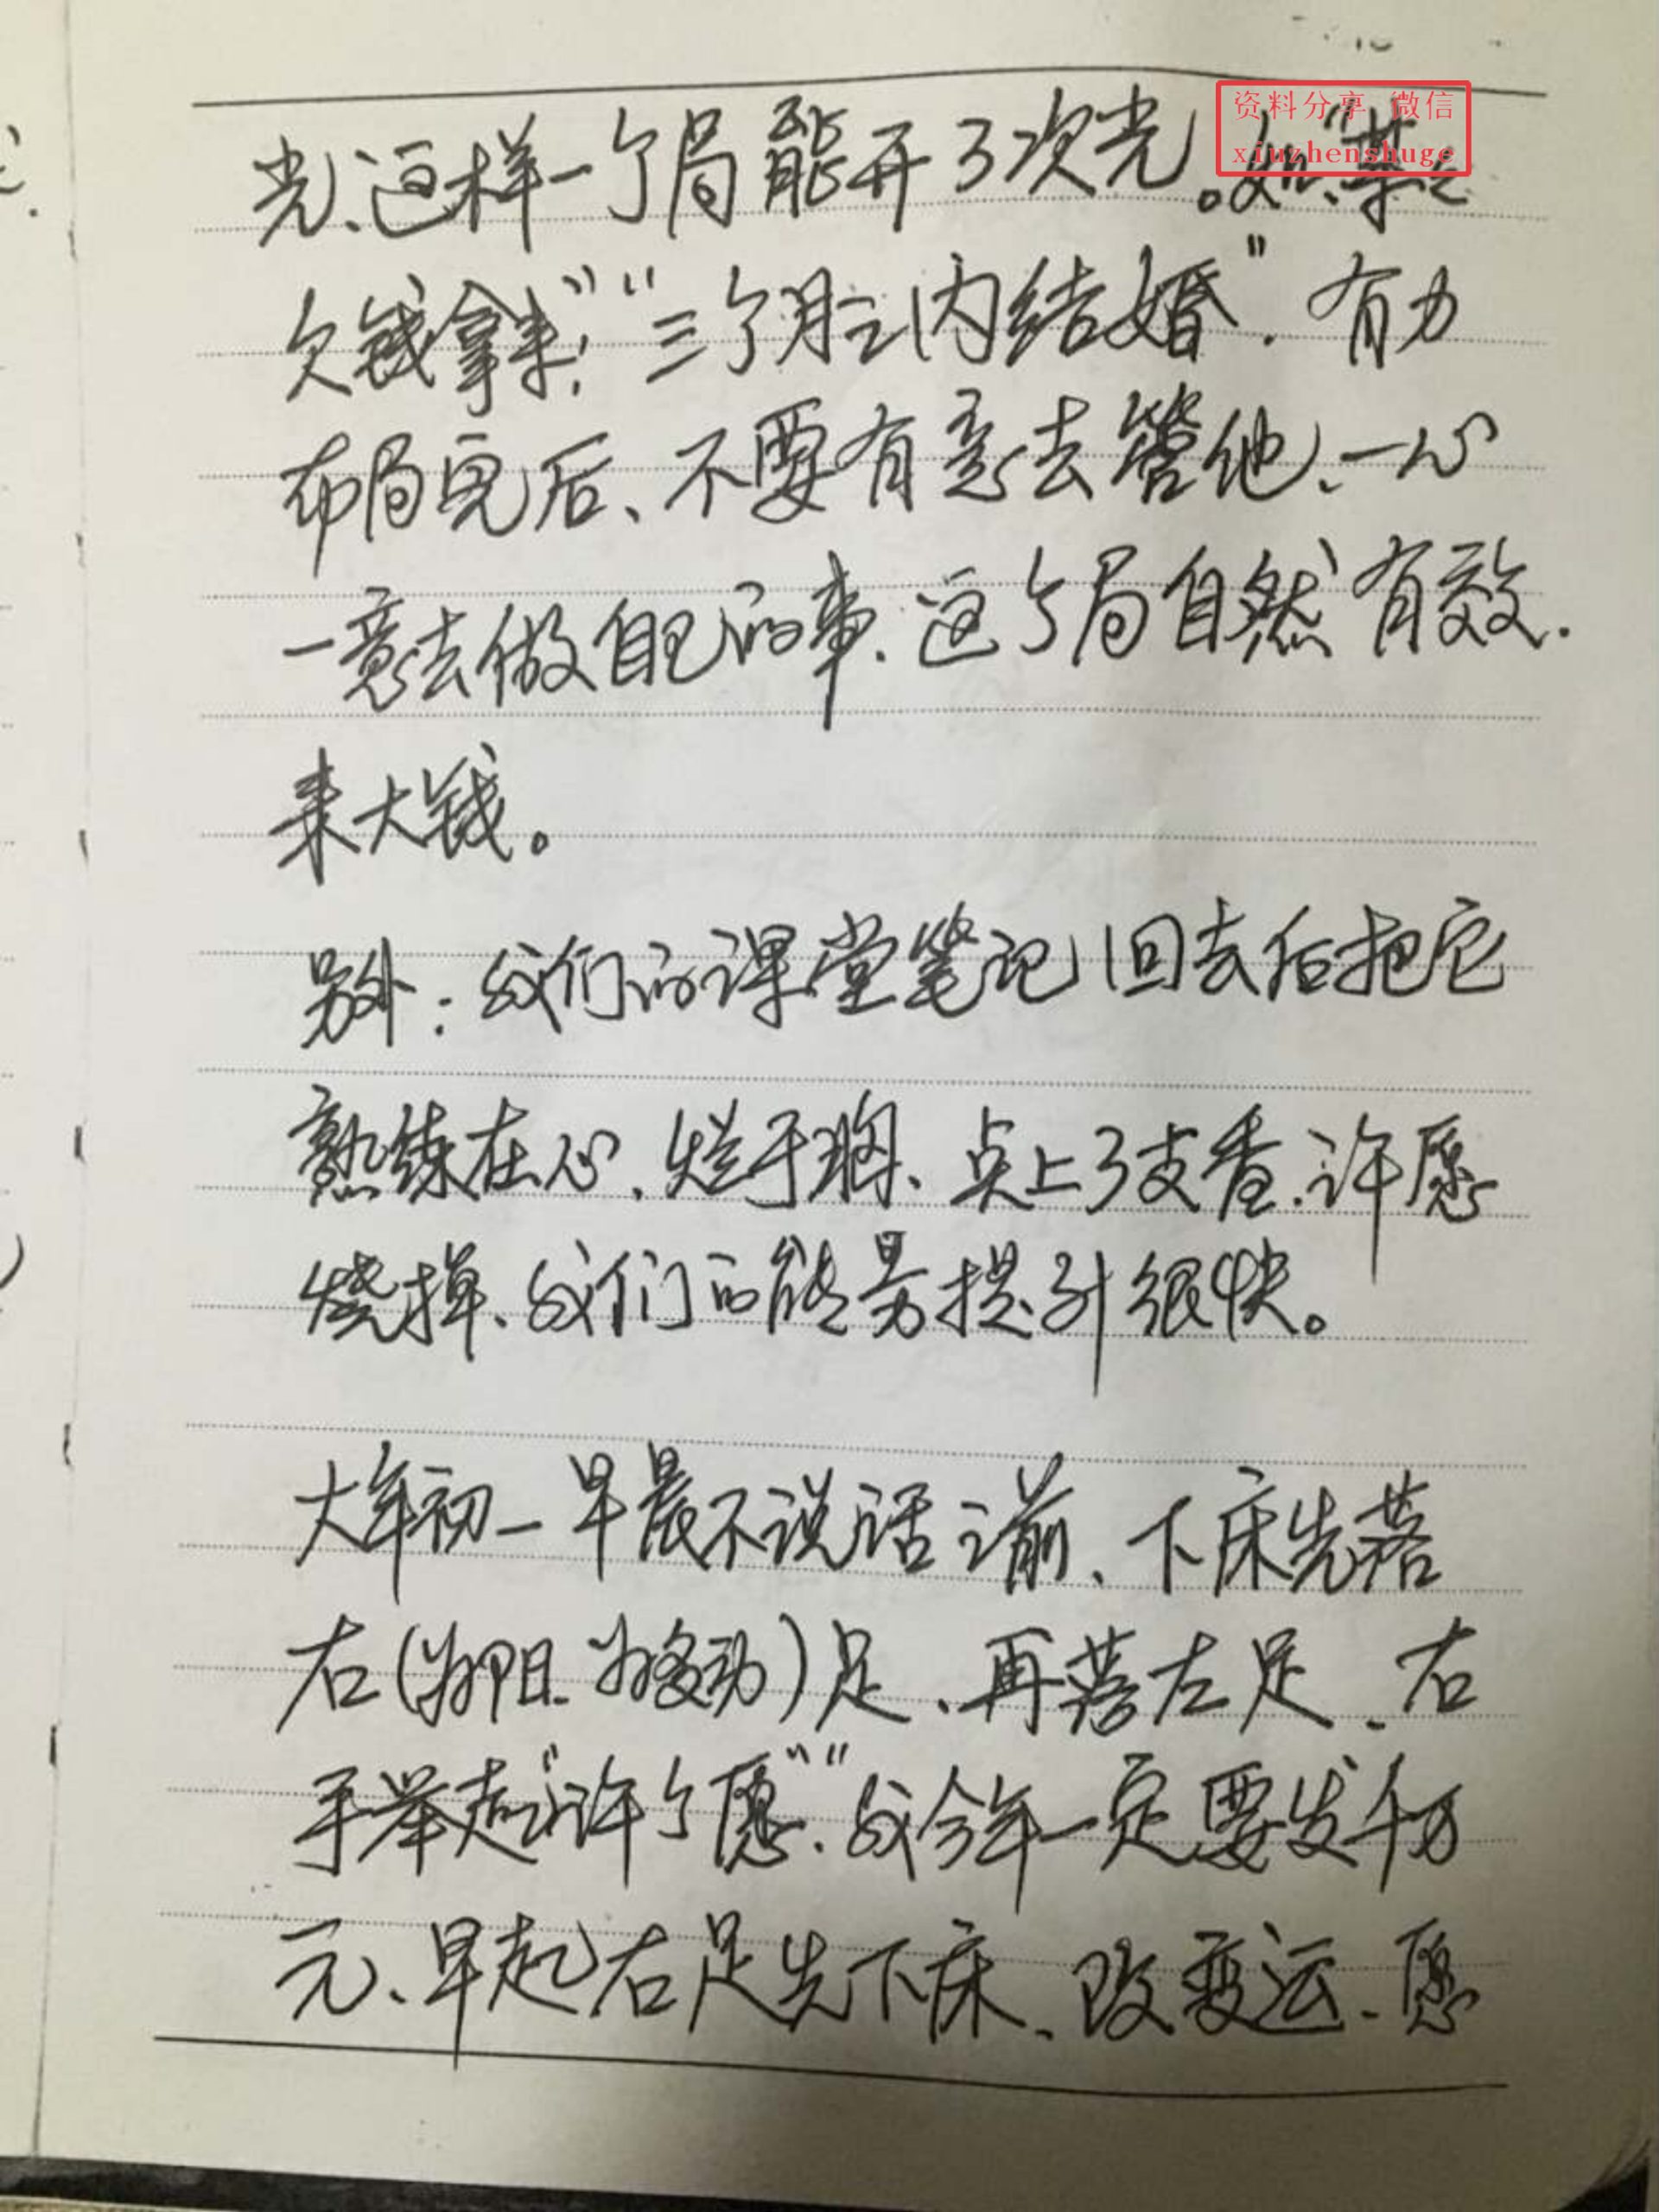 资料分享 微信
xiuzhenshuge
光、这样一个局能开3次光。如“某某
欠钱拿来!”“三个月之内结婚”.有力
布局完后、不要有意去管他、一心
一意去做自己的事.这个局自然有效.
来大钱。
另外:我们的课堂笔记回去后把它
熟练在心、烂于胸、点上3支香.许愿
烧掉、我们的能量提升很快。
大年初一早晨不说话之前、下床先落
右(为阳.为移动)足、再落左足、右
手举起“许个愿”“我今年一定要发千万
元、早起右足先下床、改变运、愿